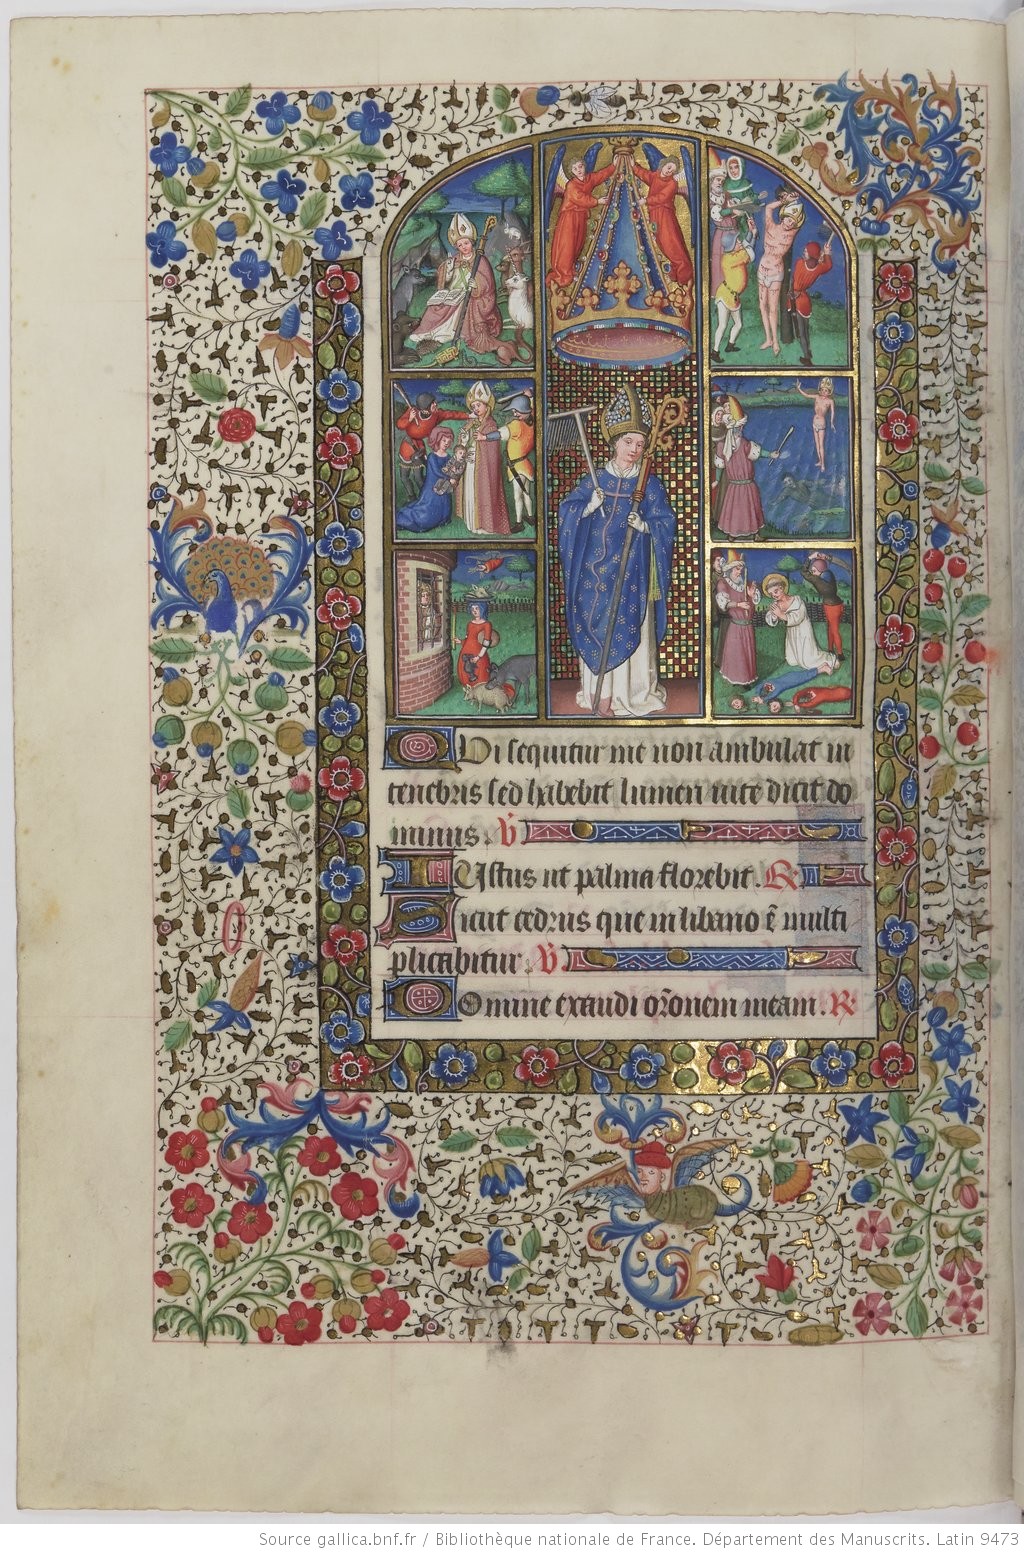 Qui sequitur me non ambulat in
tenebris sed habebit lumen vite dicit do
minus. V̄
Iustus ut palma florebit. R.
Sicut cedrus que in libano ē multi
plicabitur. V̄
Domine exaudi or̄onem meam. R.
Source gallica.bnf.fr / Bibliothèque nationale de France. Département des Manuscrits. Latin 9473